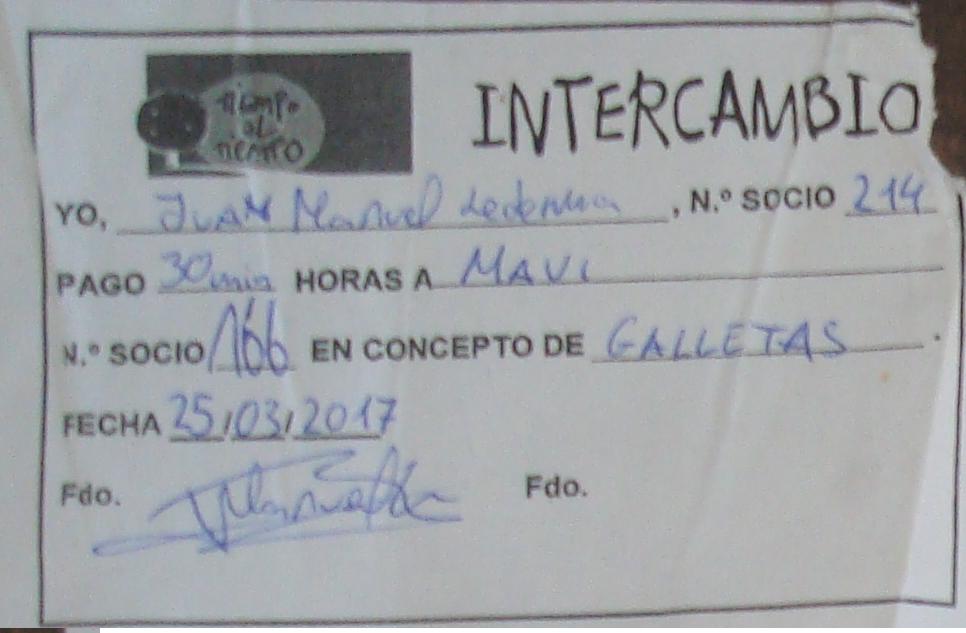 TIEMPO
AL
TIEMPO
INTERCAMBIO
YO, Juan Manuel Ledesma, N.º SOCIO 214
PAGO 30min HORAS A MAVI
N.º SOCIO 166 EN CONCEPTO DE GALLETAS.
FECHA 25/03/2017
Fdo. Fdo.